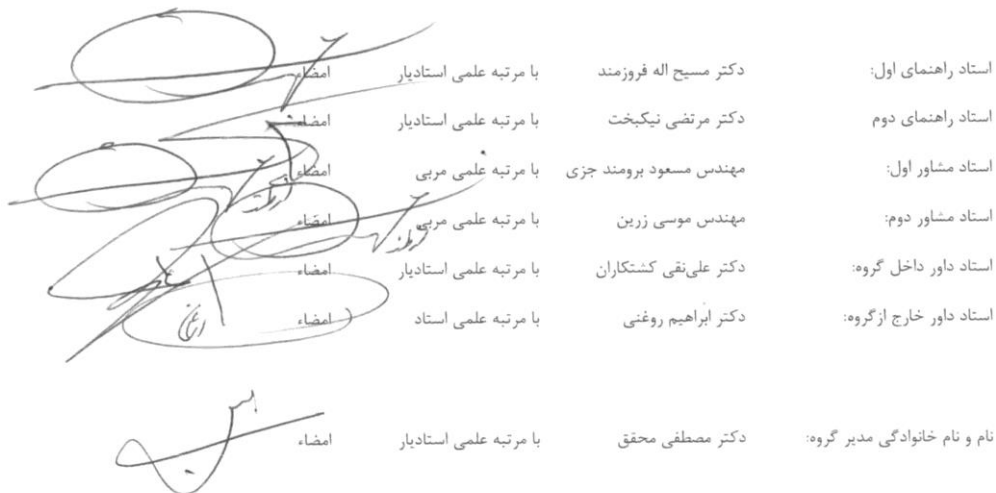 استاد راهنمای اول: دکتر مسیح اله فروزمند با مرتبه علمی استادیار امضاء
استاد راهنمای دوم دکتر مرتضی نیکبخت با مرتبه علمی استادیار امضاء
استاد مشاور اول: مهندس مسعود برومند جزی با مرتبه علمی مربی امضاء
استاد مشاور دوم: مهندس موسی زرین با مرتبه علمی مربی امضاء
استاد داور داخل گروه: دکتر علی‌نقی کشتکاران با مرتبه علمی استادیار امضاء
استاد داور خارج ازگروه: دکتر ابراهیم روغنی با مرتبه علمی استاد امضاء
نام و نام خانوادگی مدیر گروه: دکتر مصطفی محقق با مرتبه علمی استادیار امضاء